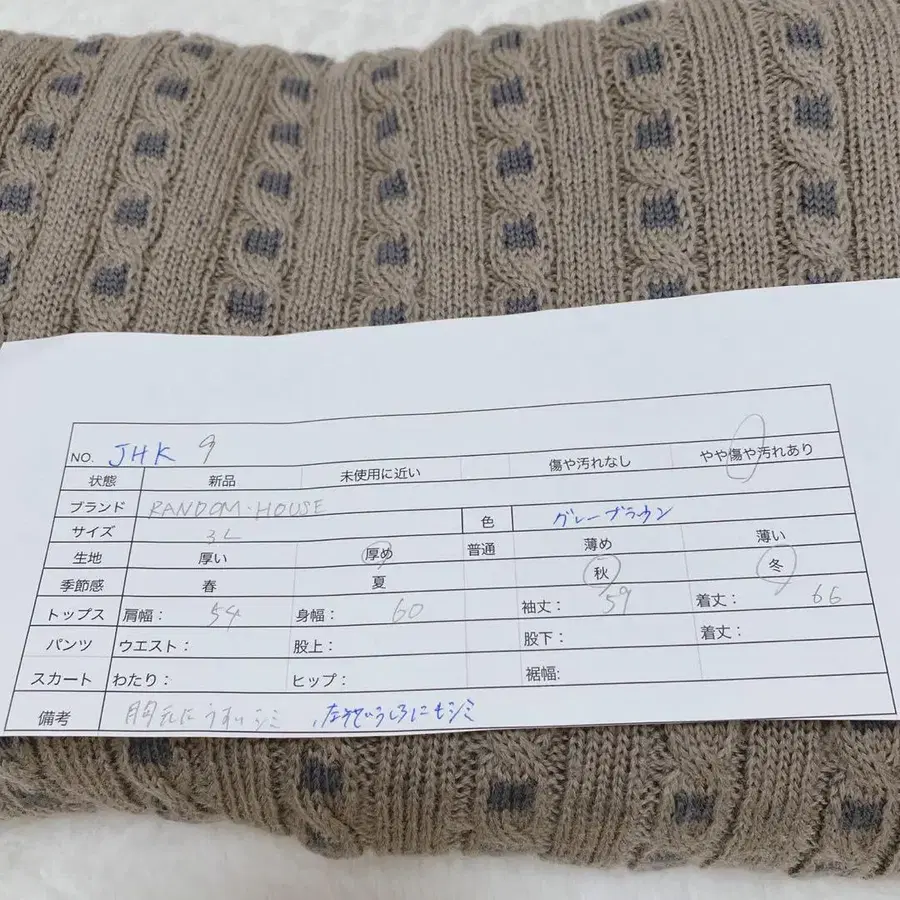 NO. JHK 9
状態 新品 未使用に近い 傷や汚れなし やや傷や汚れあり
ブランド RANDOM・HOUSE
サイズ 3L 色 グレーブラウン
生地 厚い 厚め 普通 薄め 薄い
季節感 春 夏 秋 冬
トップス 肩幅： 54 身幅： 60 袖丈： 59 着丈： 66
パンツ ウエスト： 股上： 股下： 着丈：
スカート わたり： ヒップ： 裾幅:
備考 胸元にうすいシミ 、左そでうしろにもシミ